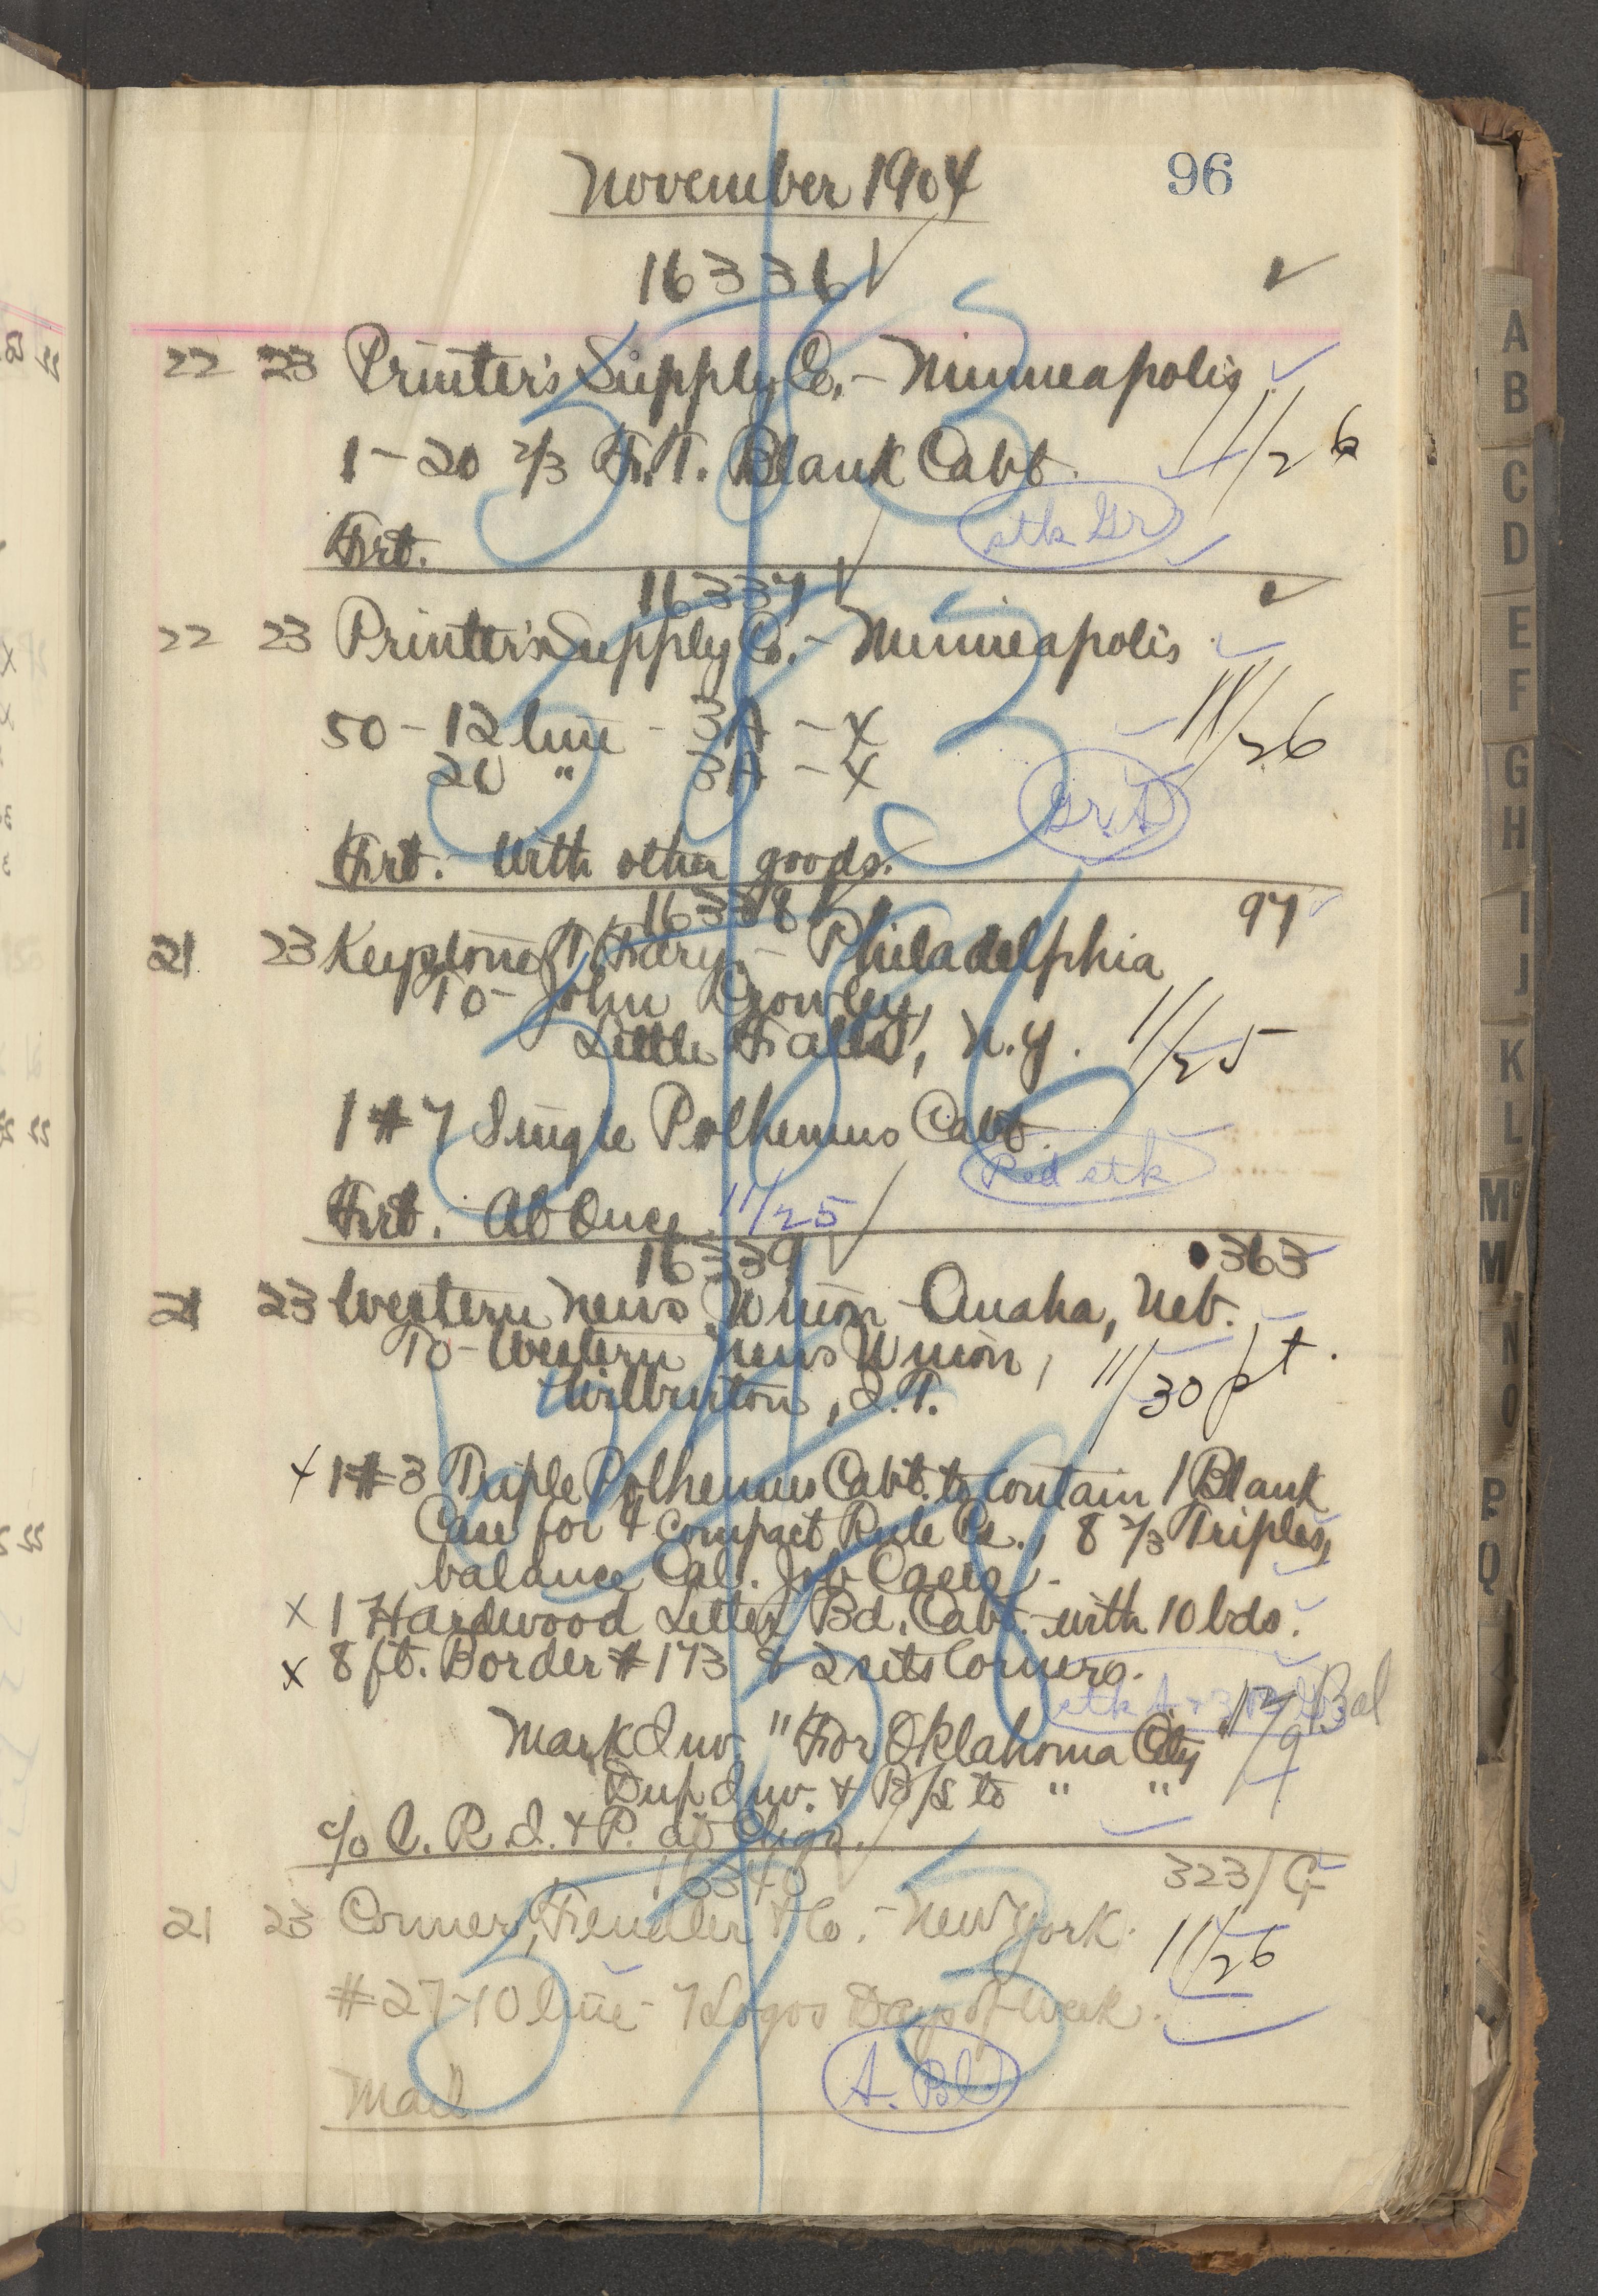 96
November 1904
16336 ✓ ✓
22 23 Printer's Supply Co. - Minneapolis
1 - 20 2/3 F.T. Blank Cabt. 11/26
stk Gr
Frt.
16337 ✓
22 23 Printer's Supply Co. - Minneapolis
50 - 12 line - 3A - X 11/26
20 " 3A - X
Frt. With other goods.
16338 97
21 23 Keystone T. Fdry. - Philadelphia
To - John Crowley,
Little Falls, N.Y. 11/25
1 #7 Single Polhemus Cabt.
Red stk
Frt. - At Once 11/25
16339 363
21 23 Western News Union - Omaha, Neb.
To - Western News Union,
Wilburton, I.T. 11/30 pt.
x 1 #3 Triple Polhemus Cabt. to contain 1 Blank
Case for & Compact Rule Cs., 8 2/3 Triples,
balance Cal. Job Cases.
x 1 Hardwood Letter Bd. Cabt. with 10 bds.
x 8 ft. Border #173 & 2 sets Corners.
stk Bal
Mark Inv. "For Oklahoma City 12/9
Dup Inv. & B/L to " "
c/o C. R. I. & P. at Chgo.
16340 323/G
21 23 Conner, Fendler & Co. - New York. 11/26
#27 - 10 line - 7 Logos Days of Week.
A. Bl
Mail